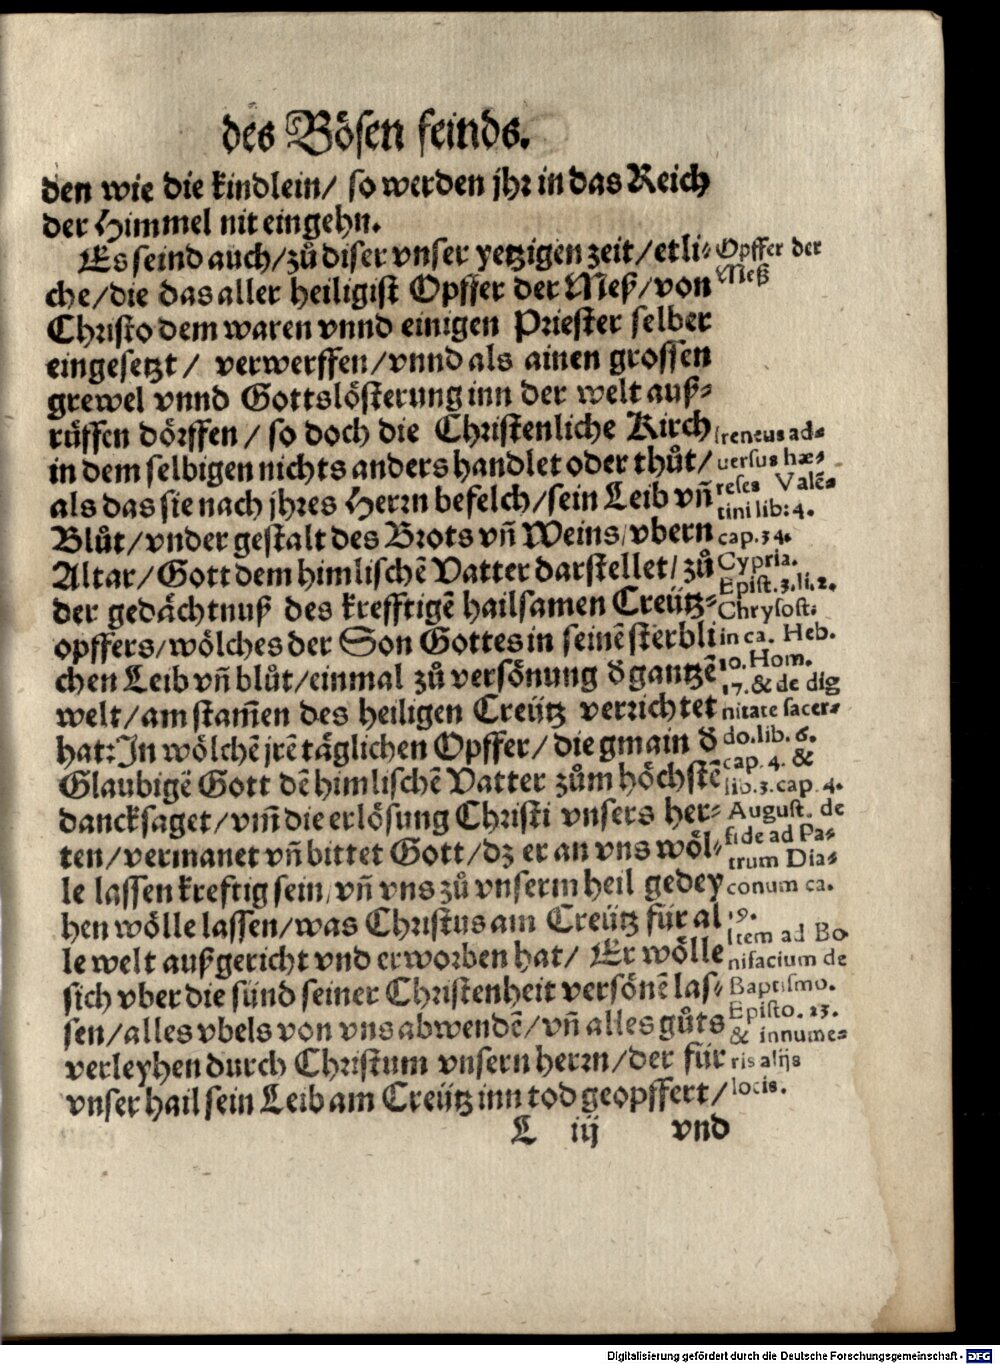 des Bösen feinds.
den wie die kindlein/ so werden jhr in das Reich
der Himmel nit eingehn.
Es seind auch/zů diser vnser yetzigen zeit/etli⸗
che/die das aller heiligist Opffer der Meß/von
Christo dem waren vnnd einigen Priester selber
eingesetzt/ verwerffen/vnnd als ainen grossen
grewel vnnd Gottslösterung inn der welt auß⸗
rüffen dörffen/ so doch die Christenliche Kirch
in dem selbigen nichts anders handlet oder thůt/
als das sie nach jhres Herrn befelch/sein Leib vñ
Blůt/vnder gestalt des Brots vñ Weins/vbern
Altar/Gott dem himlischẽ Vatter darstellet/zů
der gedächtnuß des krefftigẽ hailsamen Creütz⸗
opffers/wölches der Son Gottes in seinẽ sterbli
chen Leib vñ blůt/einmal zů versönung ð gantzẽ
welt/am stam̃en des heiligen Creütz verrichtet
hat:In wölchẽ jrẽ täglichen Opffer/die gmain ð
Glaubigẽ Gott dẽ himlischẽ Vatter zům höchstẽ
dancksaget/vm̃ die erlösung Christi vnsers her⸗
ren/vermanet vñ bittet Gott/dz er an vns wöl⸗
le lassen kreftig sein/vñ vns zů vnserm heil gedey
hen wölle lassen/was Christus am Creütz für al
le welt außgericht vnd erworben hat/ Er wölle
sich vber die sünd seiner Christenheit versönẽ las⸗
sen/alles vbels von vns abwendẽ/vñ alles gůts
verleyhen durch Christum vnsern herrn/der für
vnser hail sein Leib am Creütz inn tod geopffert/
L iij vnd
Opffer der
Meß
Ireneus ad⸗
uersus hæ⸗
reses Valẽ⸗
tini lib:4.
cap.34.
Cypria.
Epist.3.li.2.
Chrysost:
in ca. Heb.
10. Hom.
17.& de dig
nitate sacer⸗
do.lib. 6.
cap. 4. &
lib.3.cap. 4.
August. de
fide ad Pa⸗
trum Dia⸗
conum ca.
19.
Item ad Bo
nifacium de
Baptismo.
Episto. 23.
& innume⸗
ris alijs
locis.
Digitalisierung gefördert durch die Deutsche Forschungsgemeinschaft - DFG